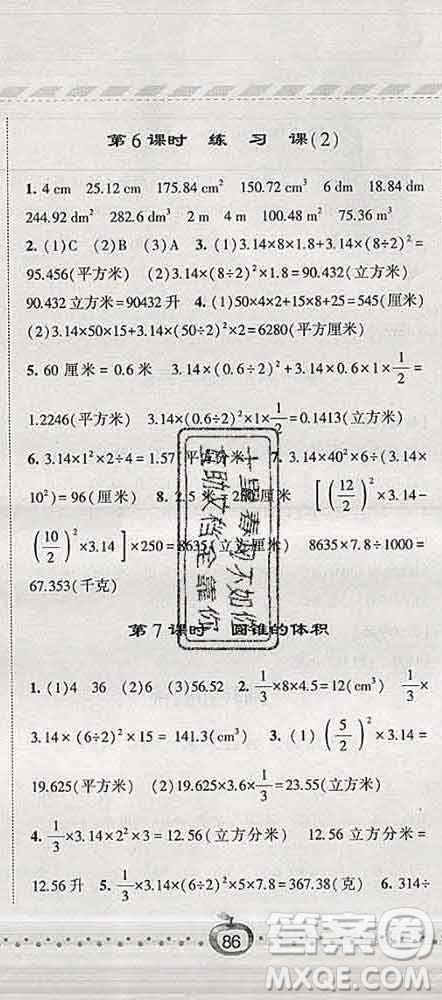 第6课时 练 习 课(2)
1. 4 cm 25.12 cm 175.84 cm² 150.72 cm³ 6 dm 18.84 dm
244.92 dm² 282.6 dm³ 2 m 4 m 100.48 m² 75.36 m³
2. (1)C (2)B (3)A 3. (1)3.14×8×1.8+3.14×(8÷2)²=
95.456(平方米) (2)3.14×(8÷2)²×1.8=90.432(立方米)
90.432 立方米=90432 升 4. (1)50×4×2+15×7+25+15=545(厘米)
(2)3.14×50×15+3.14×(50÷2)²×2=6280(平方厘米)
5. 60 厘米=0.6 米 3.14×(0.6÷2)²+3.14×0.6×1×1/2=
1.2246(平方米) 3.14×(0.6÷2)²×1×1/2=0.1413(立方米)
6. 3.14×1²×2÷4=1.57(平方米) 7. 3.14×40²×6÷(3.14×
10²)=96(厘米) 8. 2.5 米=250 厘米 [(12/2)²×3.14-
(10/2)²×3.14]×250=8635(立方厘米) 8635×7.8÷1000=
67.353(千克)
第7课时 圆锥的体积
1. (1)4 36 (2)6 (3)56.52 2. 1/3×8×4.5=12(cm³) 1/3×
3.14×(6÷2)²×15=141.3(cm³) 3. (1)(5/2)²×3.14=
19.625(平方米) (2)19.625×3.6×1/3=23.55(立方米)
4. 1/3×3.14×2²×3=12.56(立方分米) 12.56 立方分米=
12.56 升 5. 1/3×3.14×(6÷2)²×5×7.8=367.38(克) 6. 314÷
86
答案卷
MXQE.COM